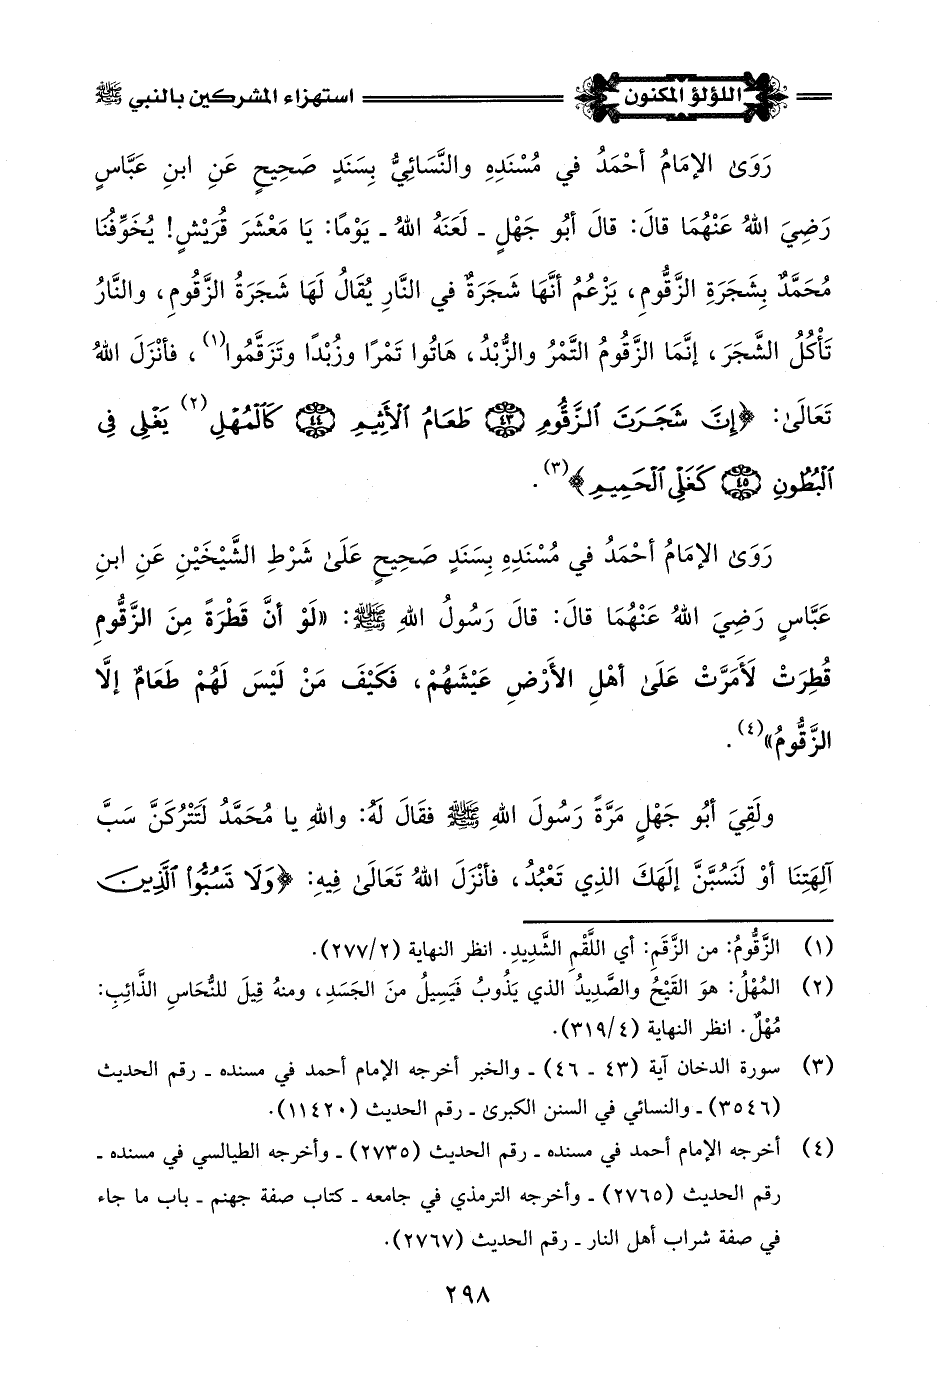 اللؤلؤ المكنون استهزاء المشركين بالنبي ﷺ
رَوَىٰ الإمَامُ أحْمَدُ في مُسْنَدِهِ والنَّسَائِيُّ بِسَنَدٍ صَحِيحٍ عَنِ ابنِ عَبَّاسٍ
رَضِيَ اللهُ عَنْهُمَا قالَ: قالَ أبُو جَهْلٍ ـ لَعَنَهُ اللهُ ـ يَوْمًا: يَا مَعْشَرَ قُرَيْشٍ! يُخَوِّفُنَا
مُحَمَّدٌ بِشَجَرَةِ الزَّقُّومِ، يَزْعُمُ أنَّهَا شَجَرَةٌ في النَّارِ يُقَالُ لَهَا شَجَرَةُ الزَّقُومِ، والنَّارُ
تَأْكُلُ الشَّجَرَ، إنَّمَا الزَّقُومُ التَّمْرُ والزُّبْدُ، هَاتُوا تَمْرًا وزُبْدًا وتَزَقَّمُوا(١)، فأنْزَلَ اللهُ
تَعَالَىٰ: ﴿إِنَّ شَجَرَتَ ٱلزَّقُّومِ ٤٣ طَعَامُ ٱلْأَثِيمِ ٤٤ كَٱلْمُهْلِ(٢) يَغْلِى فِى
ٱلْبُطُونِ ٤٥ كَغَلْىِ ٱلْحَمِيمِ﴾(٣).
رَوَىٰ الإمَامُ أحْمَدُ في مُسْنَدِهِ بِسَنَدٍ صَحِيحٍ عَلَىٰ شَرْطِ الشَّيْخَيْنِ عَنِ ابنِ
عَبَّاسٍ رَضِيَ اللهُ عَنْهُمَا قالَ: قالَ رَسُولُ اللهِ ﷺ: «لَوْ أنَّ قَطْرَةً مِنَ الزَّقُّومِ
قُطِرَتْ لَأَمَرَّتْ عَلَىٰ أهْلِ الأَرْضِ عَيْشَهُمْ، فَكَيْفَ مَنْ لَيْسَ لَهُمْ طَعَامٌ إلَّا
الزَّقُّومُ»(٤).
ولَقِيَ أبُو جَهْلٍ مَرَّةً رَسُولَ اللهِ ﷺ فقَالَ لَهُ: واللهِ يا مُحَمَّدُ لَتَتْرُكَنَّ سَبَّ
آلِهَتِنَا أوْ لَنَسُبَّنَّ إلَهَكَ الذِي تَعْبُدُ، فأنْزَلَ اللهُ تَعَالَىٰ فِيهِ: ﴿وَلَا تَسُبُّوا۟ ٱلَّذِينَ
(١) الزَّقُّومُ: من الزَّقَمِ: أي اللَّقْمِ الشَّدِيدِ. انظر النهاية (٢/٢٧٧).
(٢) المُهْلُ: هوَ القَيْحُ والصَّدِيدُ الذي يَذُوبُ فَيَسِيلُ منَ الجَسَدِ، ومنهُ قِيلَ للنُّحَاسِ الذَّائِبِ:
مُهْلٌ. انظر النهاية (٤/٣١٩).
(٣) سورة الدخان آية (٤٣ ـ ٤٦) ـ والخبر أخرجه الإمام أحمد في مسنده ـ رقم الحديث
(٣٥٤٦) ـ والنسائي في السنن الكبرىٰ ـ رقم الحديث (١١٤٢٠).
(٤) أخرجه الإمام أحمد في مسنده ـ رقم الحديث (٢٧٣٥) ـ وأخرجه الطيالسي في مسنده ـ
رقم الحديث (٢٧٦٥) ـ وأخرجه الترمذي في جامعه ـ كتاب صفة جهنم ـ باب ما جاء
في صفة شراب أهل النار ـ رقم الحديث (٢٧٦٧).
٢٩٨